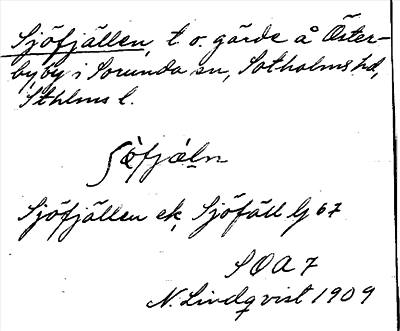 Sjöfjällen, t. o. gärde å Öster-
byby i Sorunda sn, Sotholms hd,
Sthlms l.
Sjöfjällen ek, Sjöfäll G 67
S O A 7
N. Lindqvist 1909